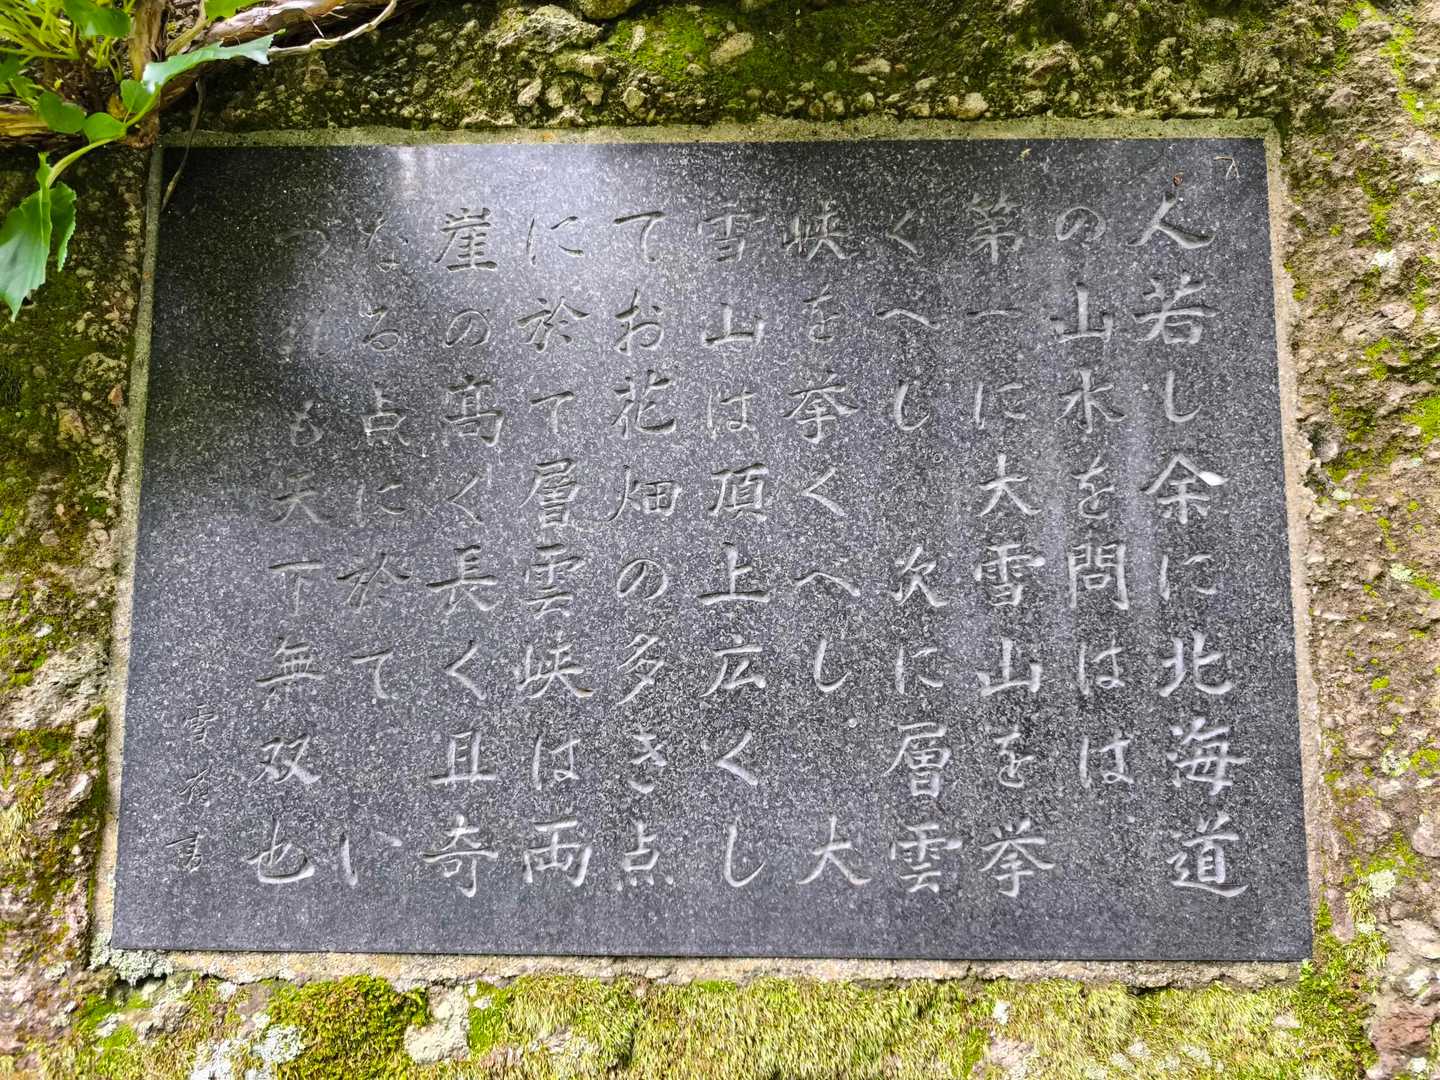 人若し余に北海道
の山水を問はは
第一に大雪山を挙
くへし。次に層雲
峡を挙くへし。大
雪山は頂上広くし
てお花畑の多き点
に於て層雲峡は両
崖の髙く長く且奇
なる点に於て い
つれも天下無双也
雪 書